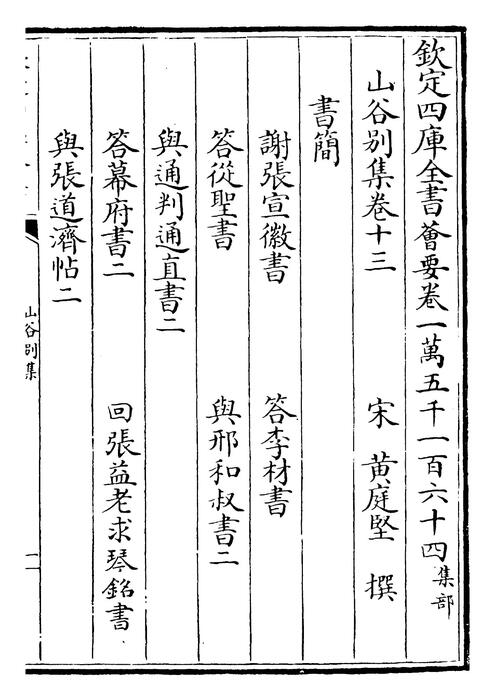 欽定四庫全書薈要卷一萬五千一百六十四集部
山谷別集卷十三 宋 黃庭堅 撰
書簡
謝張宣徽書 答李材書
答從聖書 與邢和叔書二
與通判通直書二
答幕府書二 回張益老求琴銘書
與張道濟帖二
山谷別集